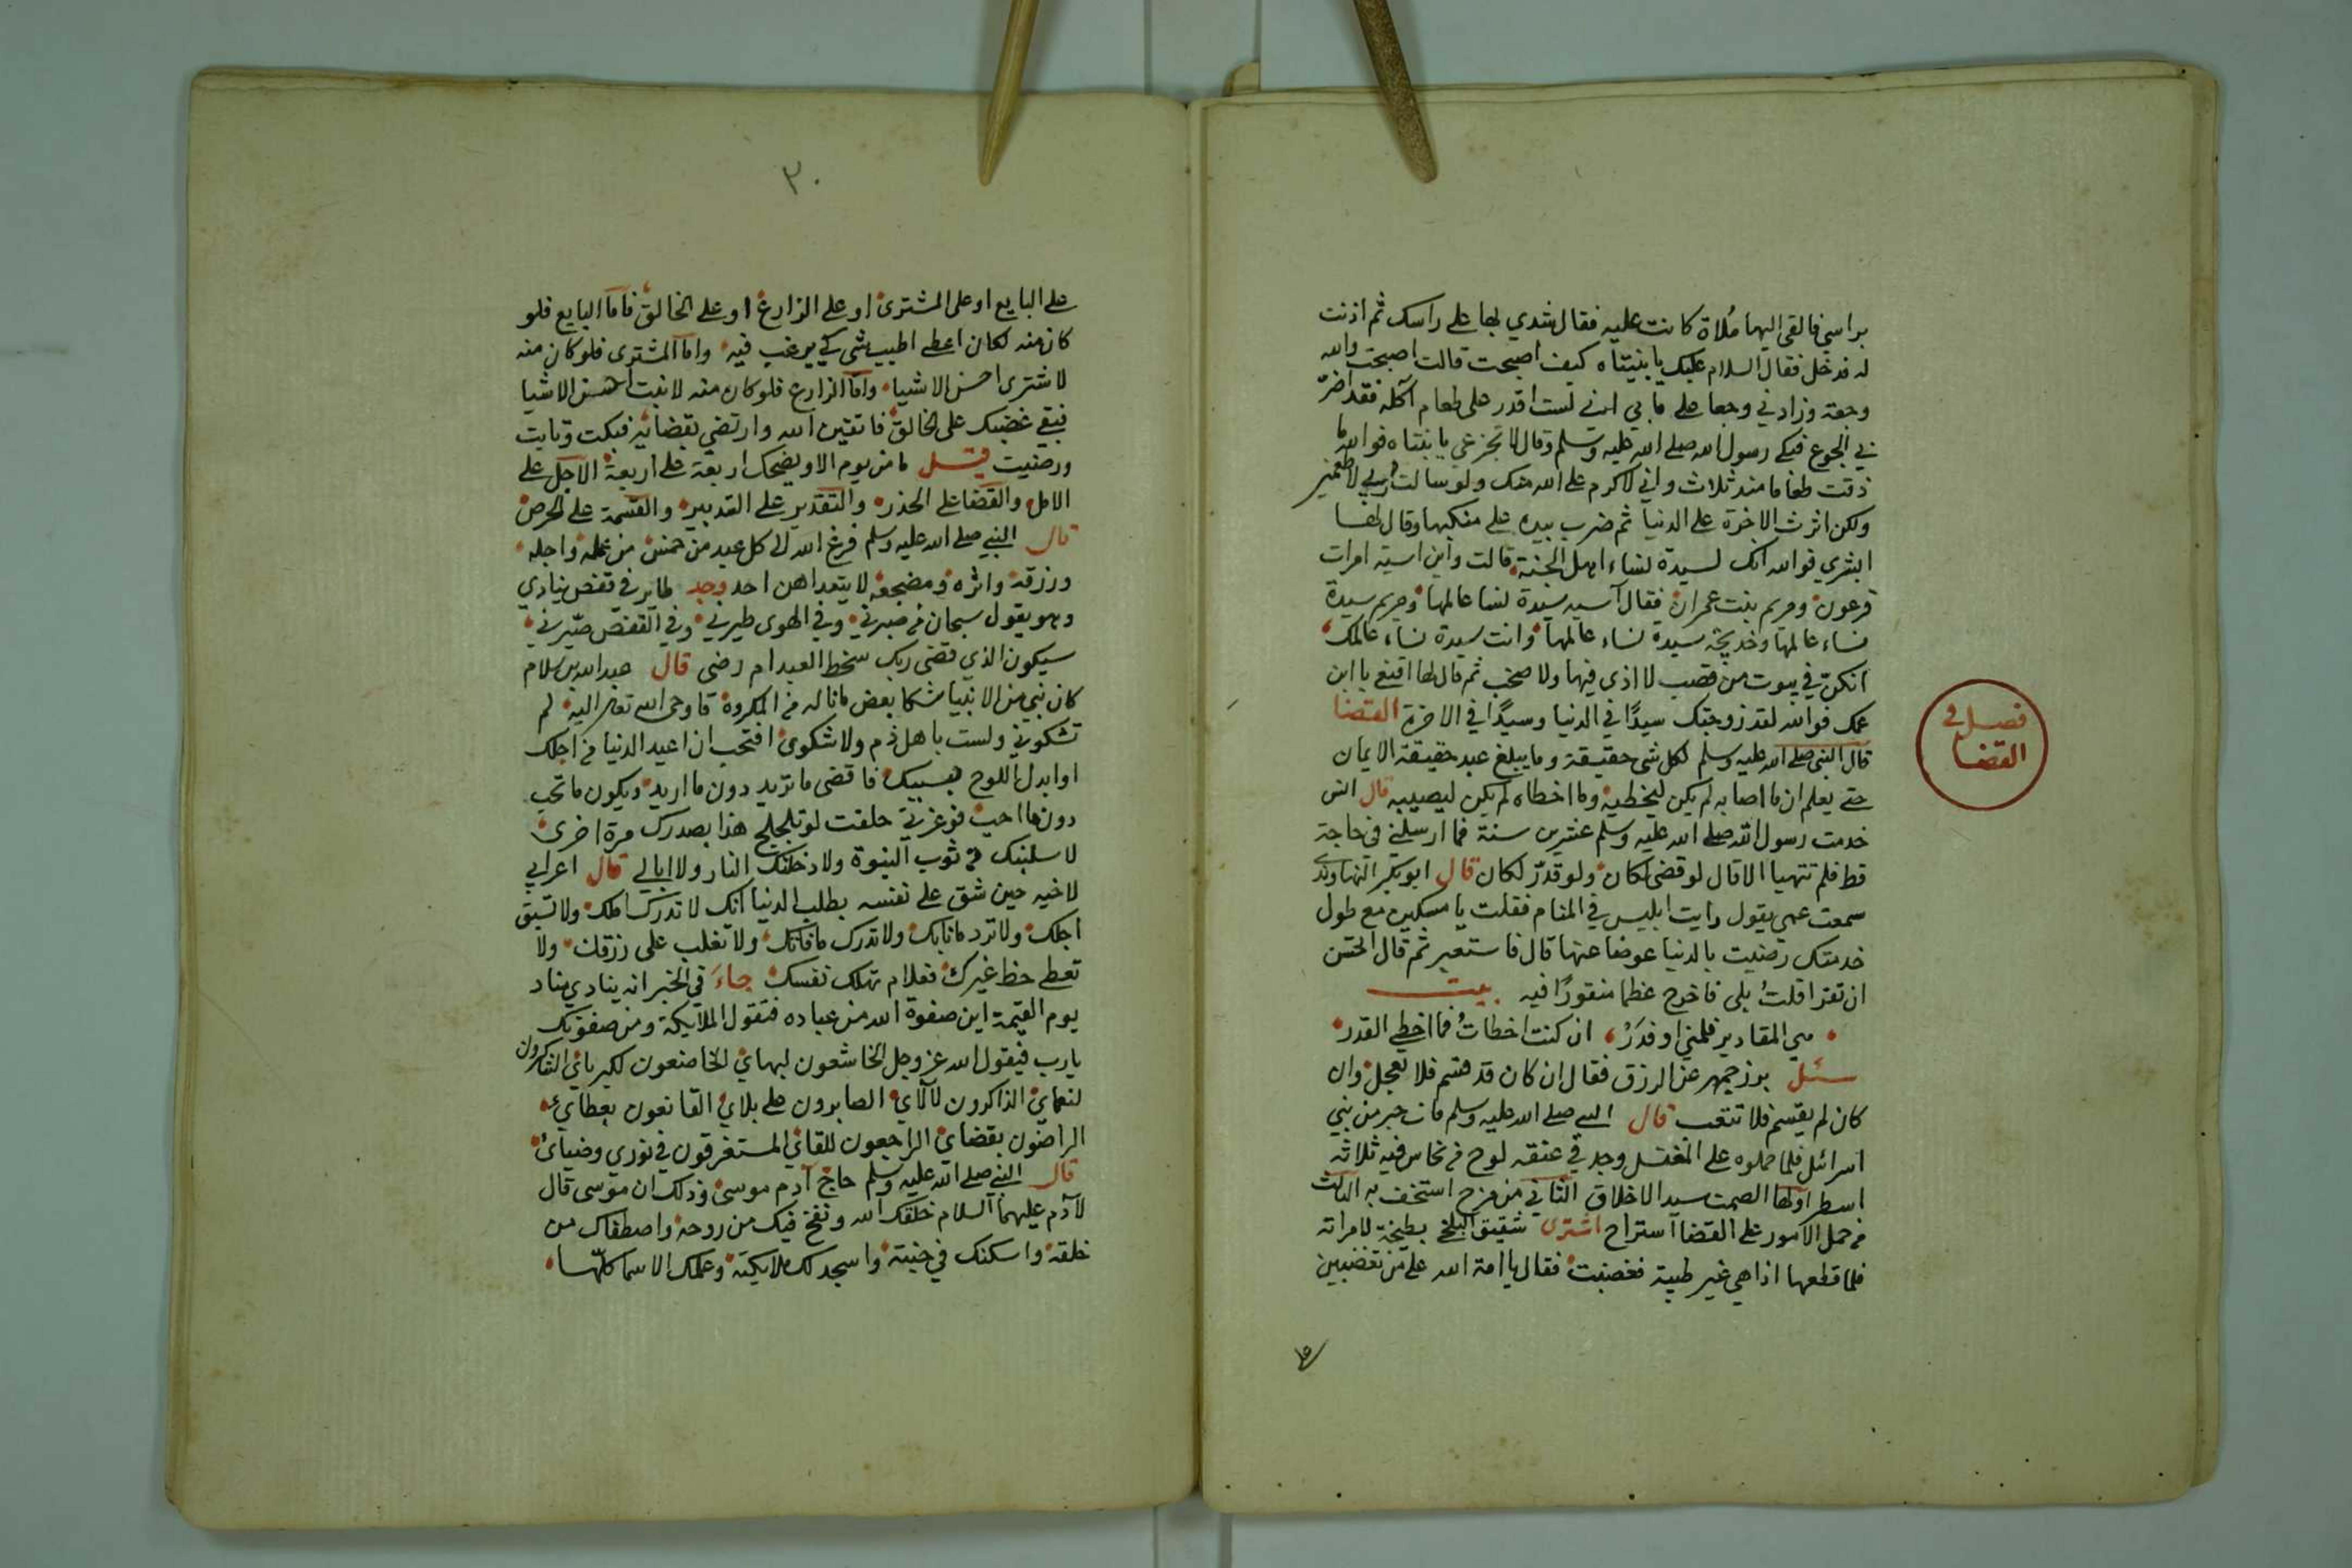 براسي فالقى اليها مُلاة كانت عليه فقال شدي بها على راسك ثم اذنت
له فدخل فقال السلام عليك يا بنيتاه كيف اصبحت قالت اصبحت والله
وجعة وزادني وجعا على ما بي اني لست اقدر على طعام آكله فقد اضرّ
بي الجوع فبكى رسول الله صلى الله عليه وسلم وقال لا تجزعي يا بنتاه فوالله ما
ذقت طعاما منذ ثلاث واني لاكرم على الله منك ولو سالت ربي لاطعمني
ولكن اثرت الاخرة على الدنيا ثم ضرب بيده على منكبها وقال لها
ابشري فوالله انك لسيدة نساء اهل الجنة قالت واين اسية امرات
فرعون ومريم بنت عمران فقال آسيه سيدة نسا عالمها ومريم سيدة
نساء عالمها وخديجة سيدة نساء عالمها وانت سيدة نساء عالمك
انكن في بيوت من قصب لا اذى فيها ولا صخب ثم قال لها اقنعي بابن
عمك فوالله لقد زوجتك سيدًا في الدنيا وسيدًا في الاخرة القضا
فصل في
القضا
قال النبي صلى الله عليه وسلم لكل شي حقيقة وما يبلغ عبد حقيقة الايمان
حتى يعلم ان ما اصابه لم يكن ليخطيه وما اخطاه لم يكن ليصيبه قال انس
خدمت رسول الله صلى الله عليه وسلم عشرين سنة فما ارسلني في حاجة
قط فلم تتهيا الا قال لو قضى لكان ولو قدّر لكان قال ابوبكر النهاوندي
سمعت عمي يقول رايت ابليس في المنام فقلت يا مسكين مع طول
خدمتك رضيت بالدنيا عوضا عنها قال فاستعبر ثم قال الحسن
ان تقرا قلتُ بلى فاخرج عظما منقورًا فيه بيت
هي المقادير فلمني او فذَرْ ان كنت اخطاتُ فما اخطى القدر
سئل بوزجمهر عن الرزق فقال ان كان قد قسم فلا تعجل وان
كان لم يقسم فلا تتعب قال النبي صلى الله عليه وسلم مات حبر من بني
اسرائل فلما حملوه على المغتسل وجد في عنقه لوح من نحاس فيه ثلاثه
اسطر اولها الصمت سيد الاخلاق الثاني من مزح استخف به الثالث
من حمل الامور على القضا استراح اشترى شقيق البلخي بطيخة لامراته
فلما قطعها اذا هي غير طيبة فغضبت فقال يا امة الله على من تغضبين
٣٠
على البايع او على المشتري او على الزارع او على الخالق فاما البايع فلو
كان منه لكان اعطى اطيب شي كي يرغب فيه واما المشتري فلو كان منه
لاشترى احسن الاشيا واما الزارع فلو كان منه لانبت احسن الاشيا
فبقي غضبك على الخالق فاتقين الله وارتضي بقضائه فبكت وتابت
ورضيت قيل ما من يوم الا ويضحك اربعة على اربعة الاجل على
الامل والقضا على الحذر والتقدير على التدبير والقسمة على الحرص
قال النبي صلى الله عليه وسلم فرغ الله الى كل عبد من خمس من عمله واجله
ورزقه واثره ومضجعه لا يتعداهن احد وجد طاير في قفص ينادي
وهو يقول سبحان من صبرني وفي الهوى طيرني وفي القفص صيّرني
سيكون الذي قضى ربك سخط العبد ام رضى قال عبدالله بن سلام
كان نبي من الانبيا شكا بعض ما ناله من المكروه فاوحى الله تعالى اليه لم
تشكوني ولست باهل ذم ولا شكوى افتحب ان اعيد الدنيا من اجلك
او ابدل اللوح بسببك فاقضى ما تريد دون ما اريد ويكون ما تحب
دون ما احب فوعزتي حلفت لو تلجلج هذا بصدرك مرة اخرى
لاسلبنك من ثوب النبوة ولادخلنك النار ولا ابالي قال اعرابي
لاخيه حين شق على نفسه بطلب الدنيا انك لا تدرك املك ولا تسبق
اجلك ولا ترد ما نابك ولا تدرك ما فاتك ولا تغلب على رزقك ولا
تعطى حظ غيرك فعلام تهلك نفسك جاءَ في الخبر انه ينادي مناد
يوم القيمة اين صفوة الله من عباده فتقول الملايكة ومن صفوتك
يارب فيقول الله عز وجل الخاشعون لبهاي الخاضعون لكبرياي الشاكرون
لنعماي الذاكرون لآلاي الصابرون على بلاي القانعون بعطاي
الراضون بقضاي الراجعون للقاي المستغرقون في نوري وضيائ
قال النبي صلى الله عليه وسلم حاج آدم موسى وذلك ان موسى قال
لآدم عليهما السلام خلقك الله ونفخ فيك من روحه واصطفاك من
خلقه واسكنك في جنته واسجد لك ملايكته وعلمك الاسما كلّها